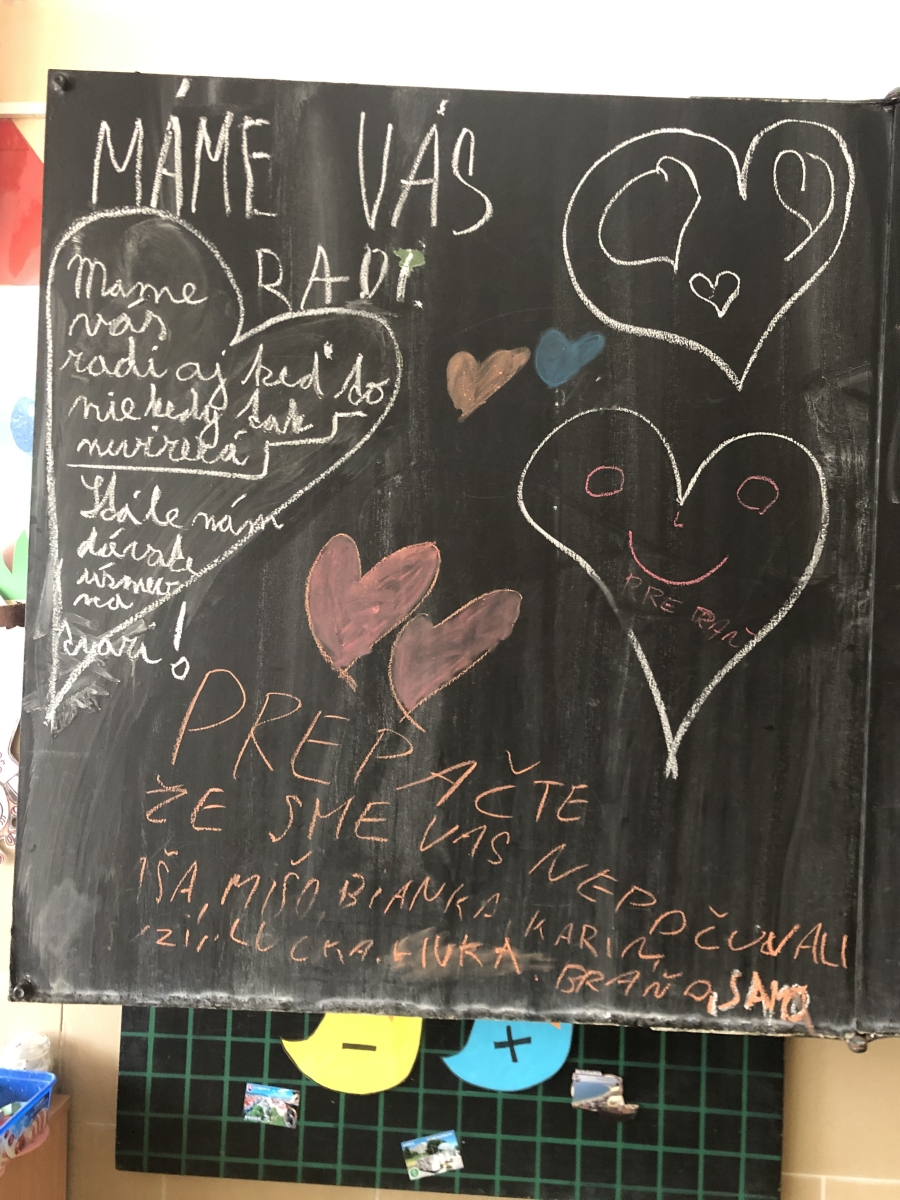 MÁME VÁS
RADI.
Máme
vás
radi aj keď to
niekedy tak
nevirerá
Stále nám
dávate
úsmev
na
tvári!
PREPAČTE
ŽE SME VAS NEPOČUVALI
IŠA, MIŠO BIANKA, KARIN,
LUCKA. LIVKA. BRAŇO, SAMO
-
+